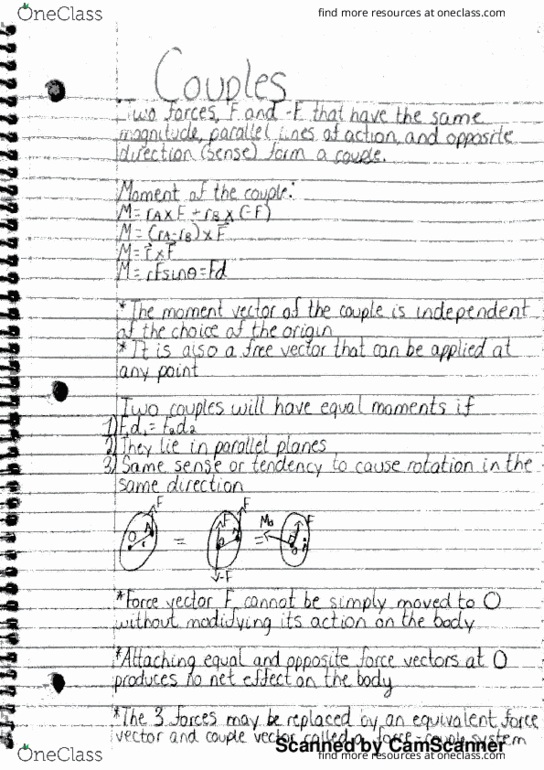 OneClass
find more resources at oneclass.com
Couples
Two forces, F and -F that have the same
magnitude, parallel lines of action, and opposite
direction (sense) form a couple.
Moment of the couple:
M = rA x F + rB x (-F)
M = (rA - rB) x F
M = r x F
M = rFsinθ = Fd
* The moment vector of the couple is independent
of the choice of the origin
* It is also a free vector that can be applied at
any point
Two couples will have equal moments if
1) F₁d₁ = F₂d₂
2) They lie in parallel planes
3) Same sense or tendency to cause rotation in the
same direction
F
O A
r
=
F F
-F
=
Mo
F
O
*Force vector F cannot be simply moved to O
without modifying its action on the body
*Attaching equal and opposite force vectors at O
produces no net effect on the body
*The 3 forces may be replaced by an equivalent force
vector and couple vector called a force-couple system
Scanned by CamScanner
OneClass
find more resources at oneclass.com